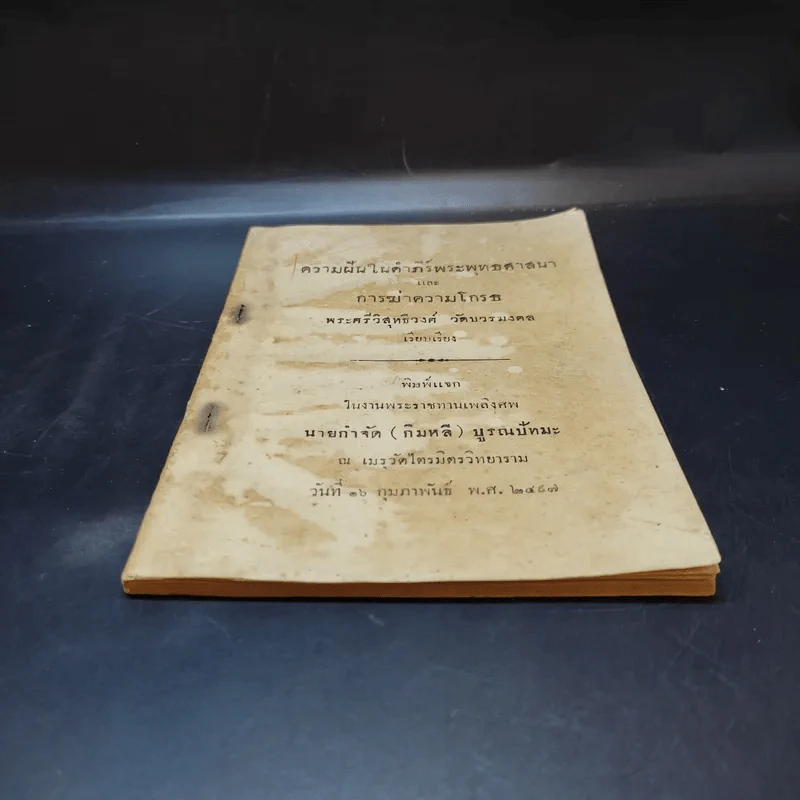 ความฝันในคำภีร์พระพุทธศาสนา
และ
การฆ่าความโกรธ
พระศรีวิสุทธิวงศ์ วัดบวรมงคล
เรียบเรียง
พิมพ์แจก
ในงานพระราชทานเพลิงศพ
นายกำจัด (กิมหลี) บูรณปัทมะ
ณ เมรุวัดไตรมิตรวิทยาราม
วันที่ ๑๖ กุมภาพันธ์ พ.ศ. ๒๔๙๗